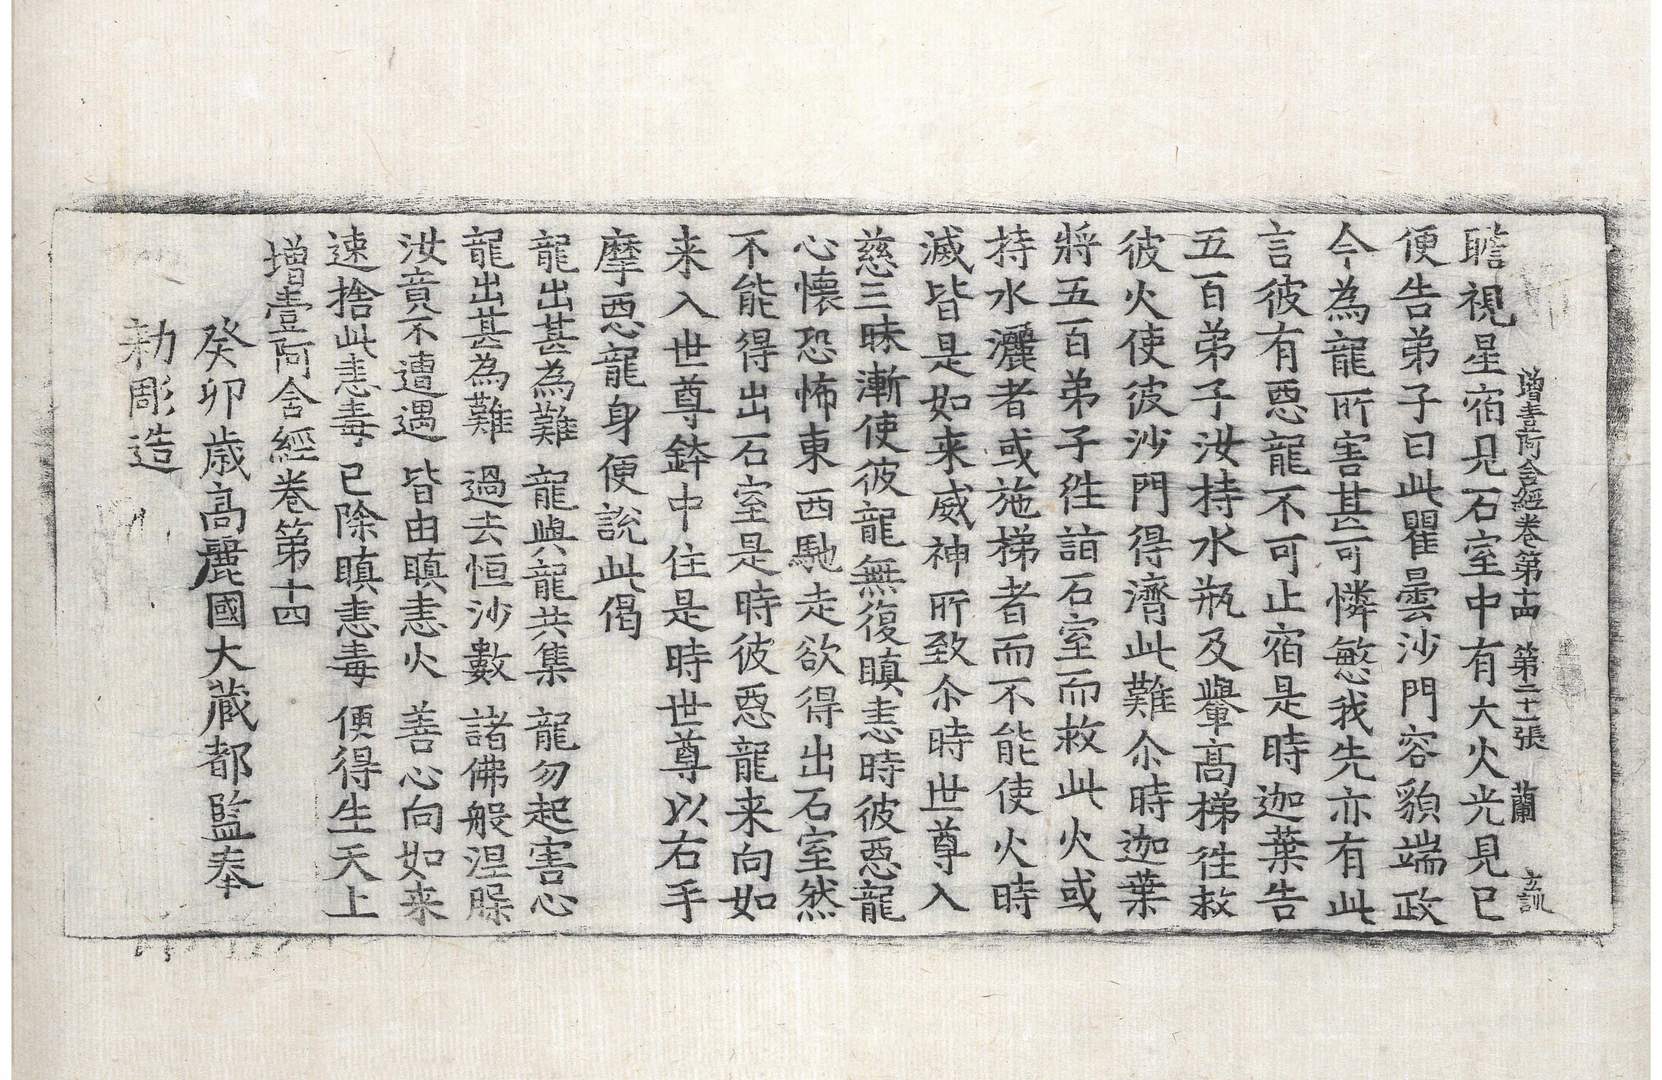 瞻視星宿見石室中有大火光見已
增壹阿含經卷第十四 第二十一張 蘭 玄訓
便告弟子曰此瞿曇沙門容貌端政
今為龍所害甚可憐愍我先亦有此
言彼有惡龍不可止宿是時迦葉告
五百弟子汝持水瓶及轝高梯往救
彼火使彼沙門得濟此難尒時迦葉
將五百弟子往詣石室而救此火或
持水灑者或施梯者而不能使火時
滅皆是如来威神所致尒時世尊入
慈三昧漸使彼龍無復瞋恚時彼惡龍
心懷恐怖東西馳走欲得出石室然
不能得出石室是時彼惡龍来向如
来入世尊鉢中住是時世尊以右手
摩惡龍身便說此偈
龍出甚為難 龍與龍共集 龍勿起害心
龍出甚為難 過去恒沙數 諸佛般涅槃
汝竟不遭遇 皆由瞋恚火 善心向如来
速捨此恚毒 已除瞋恚毒 便得生天上
增壹阿含經卷第十四
癸卯歳高麗國大藏都監奉
勑彫造